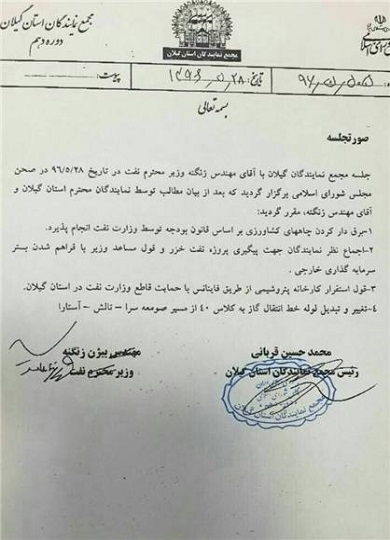 مجمع نمایندگان استان گیلان
دوره دهم
مجمع نمایندگان استان گیلان
تاریخ: ۱۳۹۶/۵/۲۸
پیوست:
بسمه تعالی
صورتجلسه
جلسه مجمع نمایندگان گیلان با آقای مهندس زنگنه وزیر محترم نفت در تاریخ ۹۶/۵/۲۸ در صحن
مجلس شورای اسلامی برگزار گردید که بعد از بیان مطالب توسط نمایندگان محترم استان گیلان و
آقای مهندس زنگنه، مقرر گردید:
۱-برق دار کردن چاههای کشاورزی بر اساس قانون بودجه توسط وزارت نفت انجام پذیرد.
۲-اجماع نظر نمایندگان جهت پیگیری پروژه نفت خزر و قول مساعد وزیر با فراهم شدن بستر
سرمایه گذاری خارجی .
۳-قول استقرار کارخانه پتروشیمی از طریق فاینانس با حمایت قاطع وزارت نفت در استان گیلان.
۴-تغییر و تبدیل لوله خط انتقال گاز به کلاس ۴۰ از مسیر صومعه سرا – تالش – آستارا
محمد حسین قربانی
رئیس مجمع نمایندگان استان گیلان
مهندس بیژن زنگنه
وزیر محترم نفت
مجمع نمایندگان استان گیلان